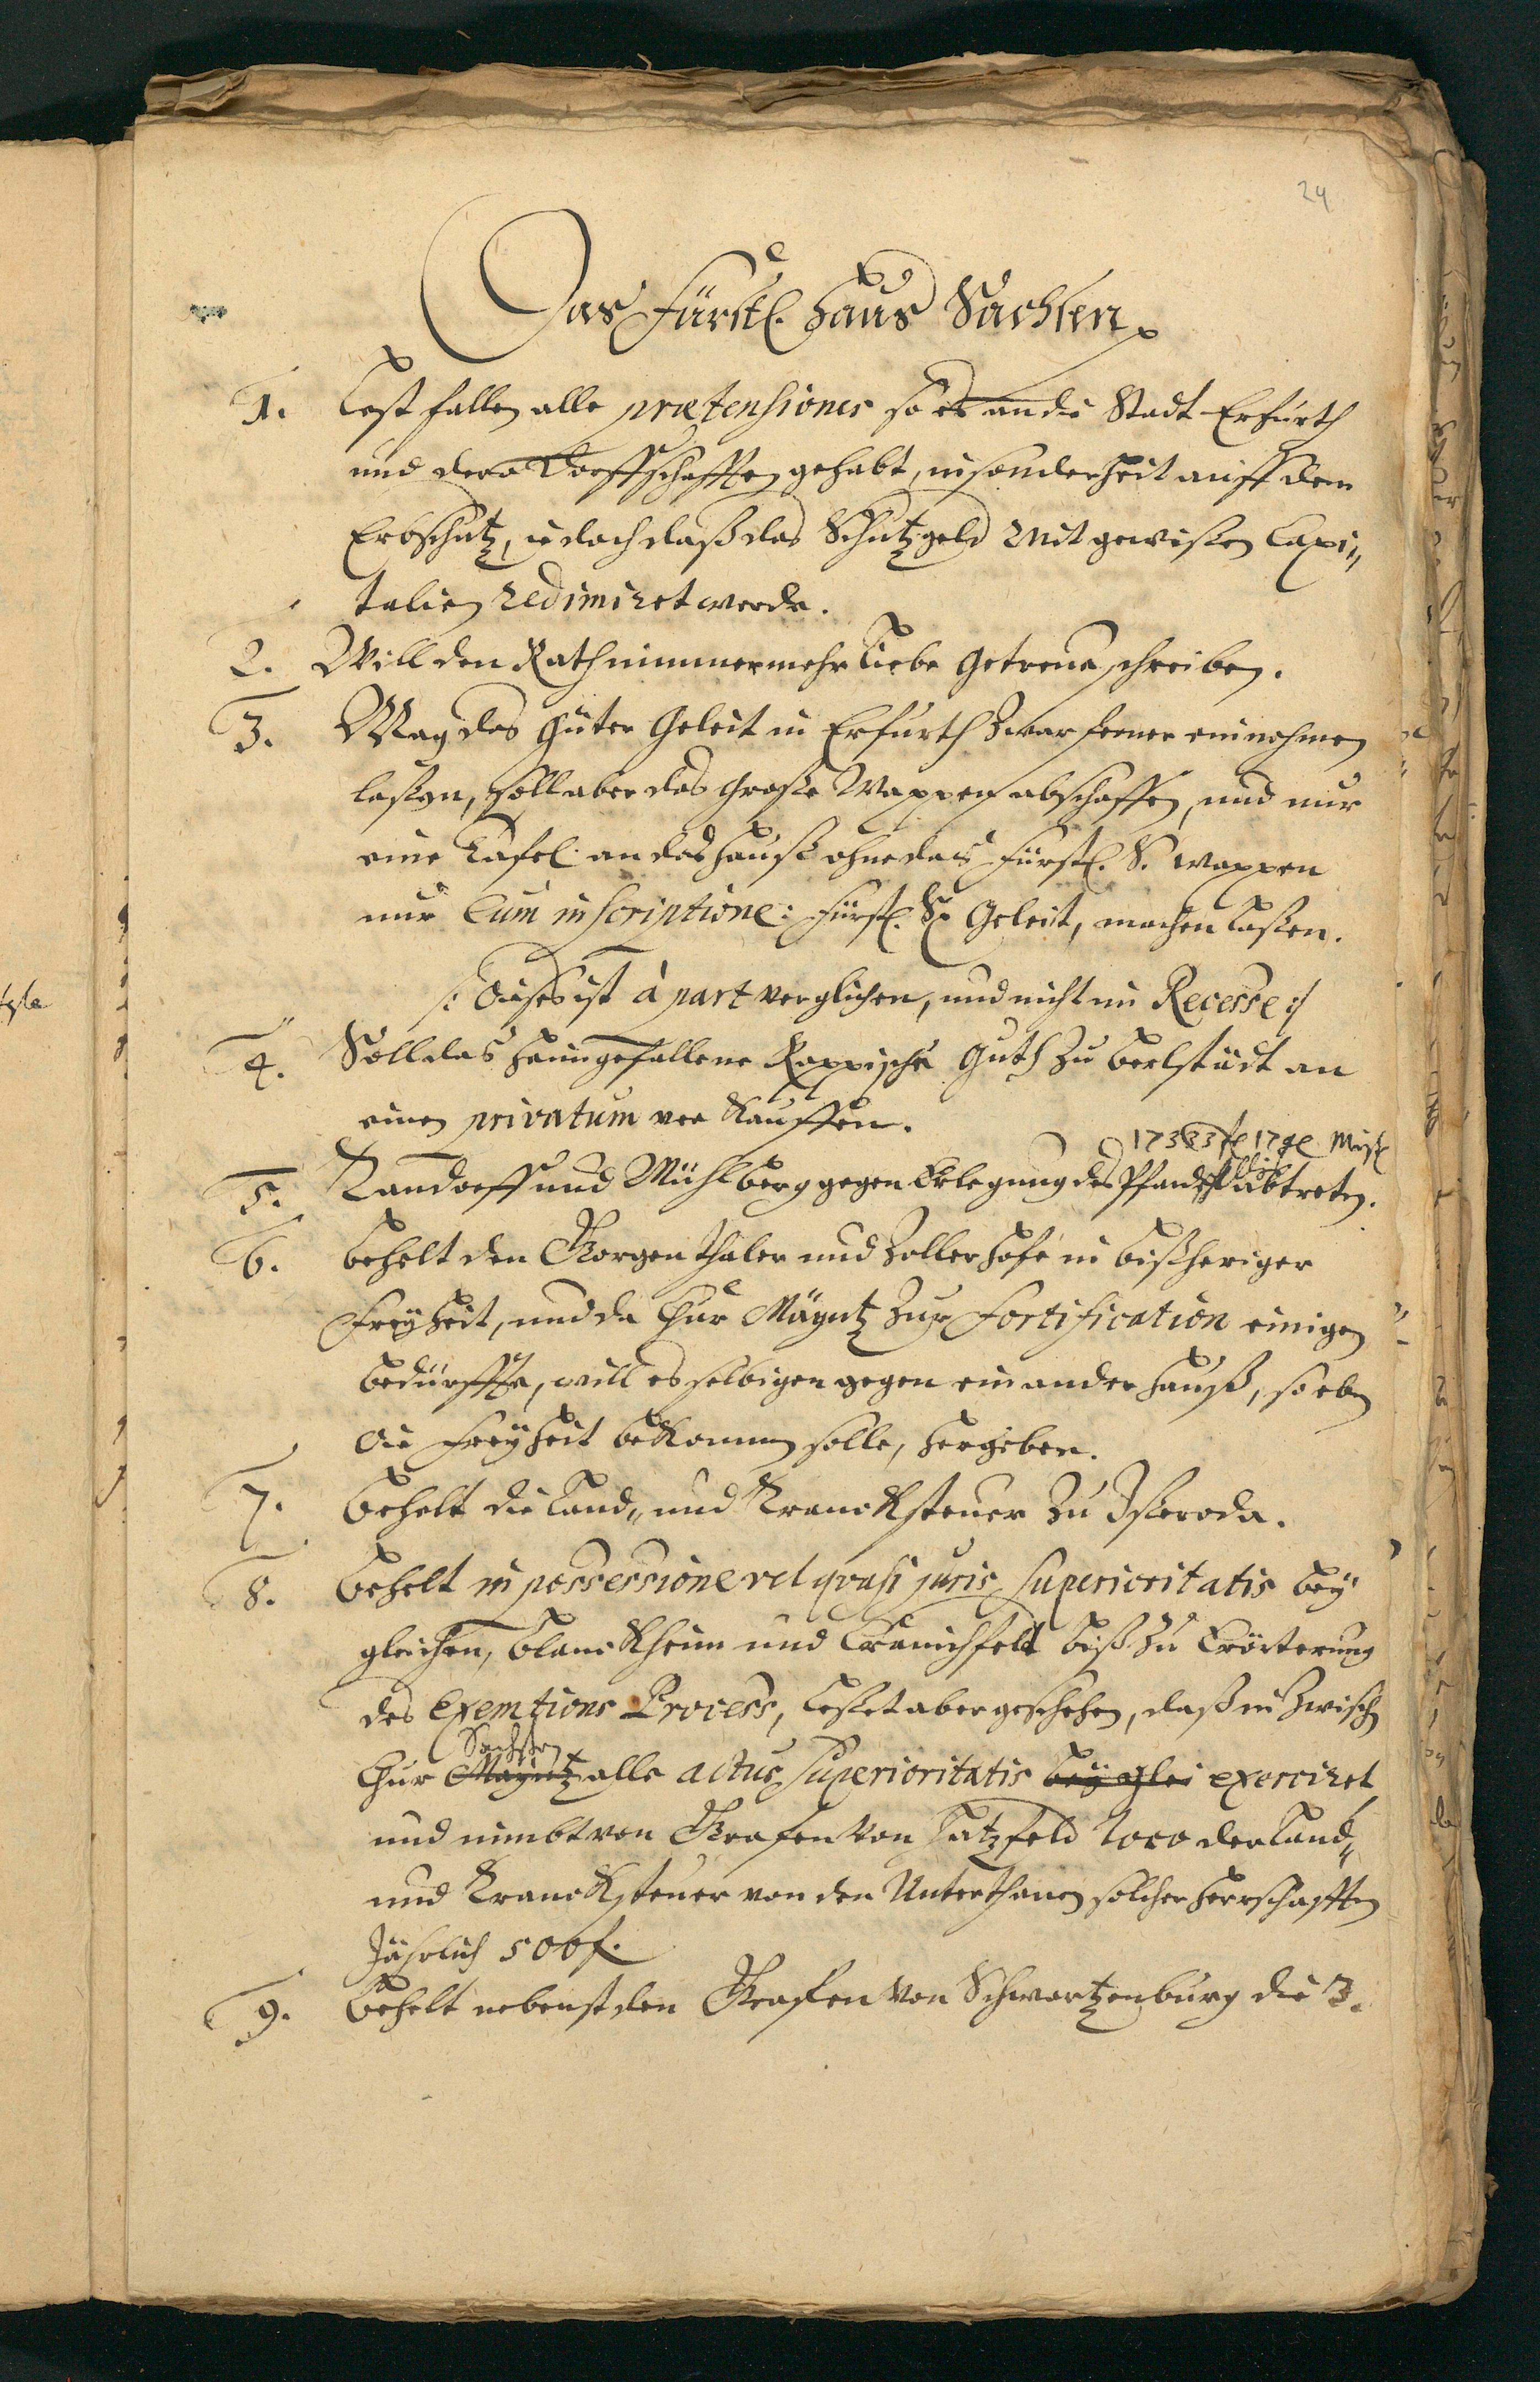 24
Das Fürstl. Haus Sachsen
1. Lest fallen alle prætensiones so es an die Stadt Erfurth
und dero Dorffschafften gehabt, insonderheit auff den
Erbschutz, iedoch daß das Schutzgeld mit gewißen Capi„
talien redimiret werde.
2. Will den Rath nimmermehr Liebe Getreue schreiben.
3. Mag das Güter Geleit in Erfurth zwar ferner einnehmen
laßen, soll aber das Große Wappen abschaffen, und nur
eine Tafel an das Hauß ohne das Fürstl. S. Wappen
nur cum inscriptione: Fürstl. S. Geleit, machen laßen.
/: Dieses ist à part verglichen, und nicht im Recesse :/
4. Soll das heimgefallene Rappische Guth zu Berlstädt an
einen privatum verkauffen.
5. Tandorff und Mühlberg gegen Erlegung des Pfandschillings abtreten.
6. Behelt den Georgenthaler und Zeller Hofe in bißheriger
Freyheit, und da Chur Mäyntz zur Fortification einigen
bedürffte, will es selbigen gegen ein ander Hauß, so eben
die Freyheit bekommen solle, hergeben.
7. Behelt die Land„ und Trancksteuer zu Isseroda.
8. Behelt in possessione vel quasi juris superioritatis bey
Gleichen, Blanckheim und Cranichfeldt biß zu Erörterung
des Exemtions Process, leßet aber geschehen, daß inzwischen
Sachßen
Chur Mäyntz alle actus superioritatis bey Glei exerciret
und nimbt von Grafen von Hatzfeld loco der Land„
und Trancksteuer von den Unterthanen solcher Herrschafften
Jährlich 500 f.
9. Behelt nebenst den Grafen von Schwartzenburg die 3.